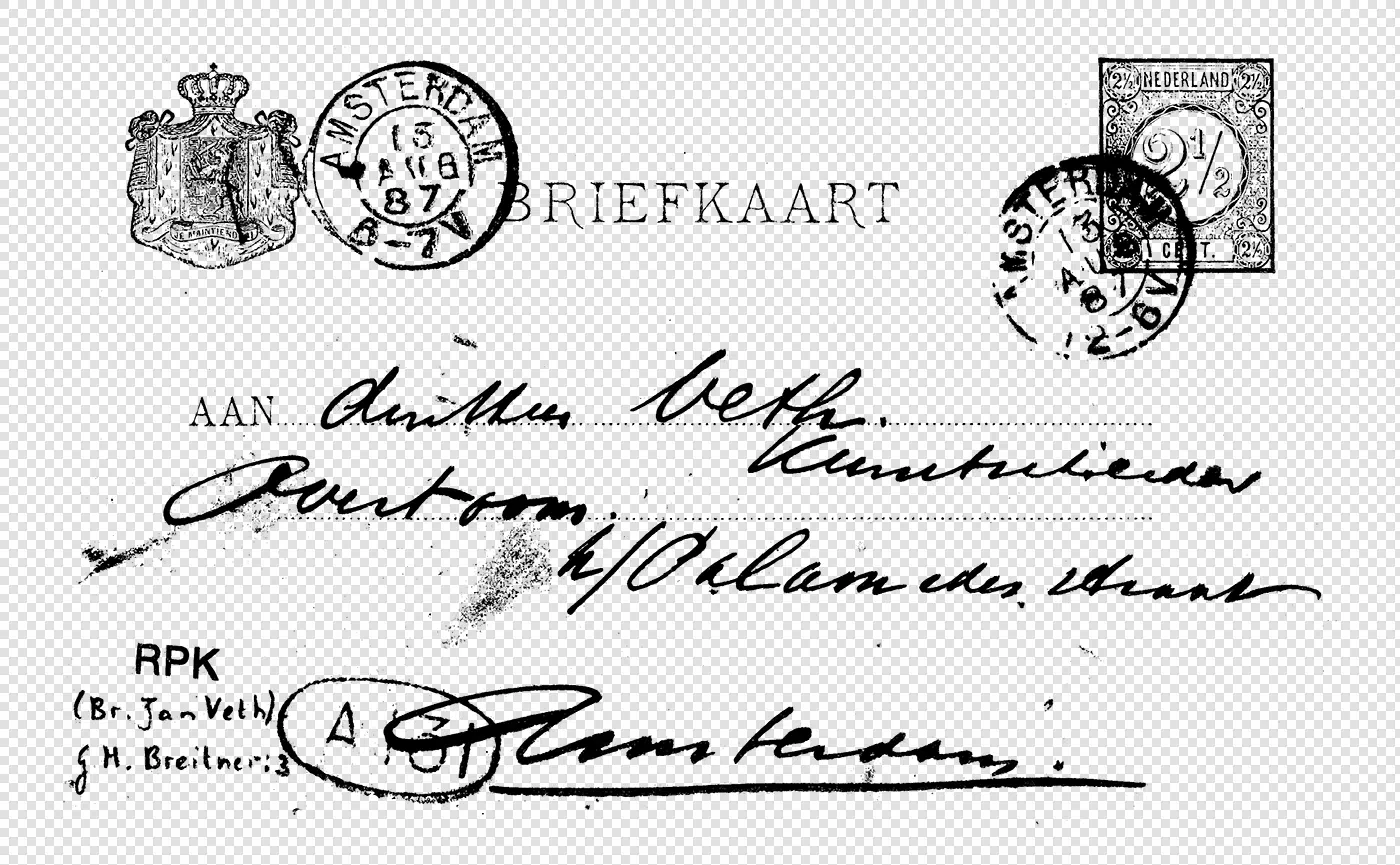 AMSTERDAM
13
AUG
87
6-7V
BRIEFKAART
2½ NEDERLAND 2½
2 1/2
CENT. 2½
AMSTERDAM
13
AUG
87
12-6V
JE MAINTIENDRAI
AAN den Heer Veth.
Kunstschilder
Overtoom.
h/ Palamedesstraat
RPK
(Br. Jan Veth)
G H. Breitner: 3
A
Amsterdam.